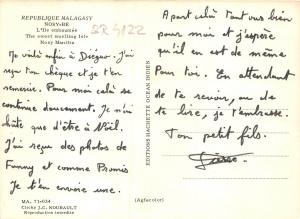 REPUBLIQUE MALAGASY
NOSY-BE
L'Île embaumée
The sweet smelling isle
Nony Manitra
Me voilà enfin à Diégo. J'ai
reçu ton chèque et je t'en
remercie. Pour moi celui se
continue doucement. Je n'ai
hâte que d'être à Noël.
J'ai reçu des photos de
Funny et comme Promis
Je t'en envoie une.
MA. 71-034
Cliché J.C. NOURAULT
Reproduction interdite
EDITIONS HACHETTE OCEAN INDIEN
(Agfacolor)
Apart cela tout vas bien
pour moi et j'espère
qu'il en est de même
Pour toi. En attendant
de te revoir, ou de
te lire, je t'embrasse.
Ton petit fils.